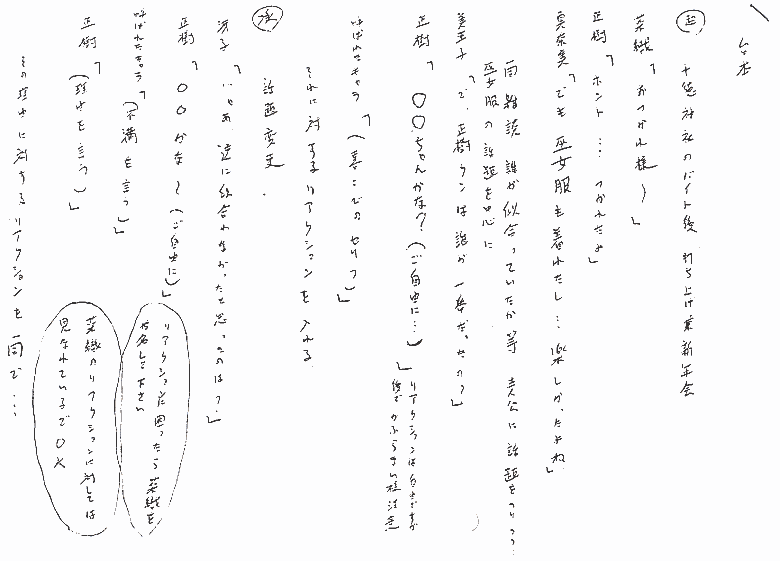 台本
起 十徳神社のバイト後 打ち上げ兼新年会
菜織「おつかれ様〜」
正樹「ホント…つかれたよ」
真奈美「でも巫女服も着れたし…楽しかったよね」
一同 雑談 誰が似合っていたか等 主人公に話題をふりつつ…
巫女服の話題を中心に
美亜子「で、正樹クンは誰が一番だったの?」
正樹「〇〇ちゃんかな?(ご自由に…)」
リアクションは自由ですが
後でかぶらない様注意
呼ばれたキャラ「(喜こびのセリフ)」
それに対するリアクションを入れる
承 話題変更.
冴子「じゃあ、逆に似合わなかったと思ったのは?」
正樹「〇〇かな〜(ご自由に)」
呼ばれたキャラ「(不満を言う)」
正樹「(理由を言う)」
その理由に対するリアクションを一同で…
リアクションに困ったら菜織を
指名して下さい
菜織のリアクションに対しては
見なれているでOK